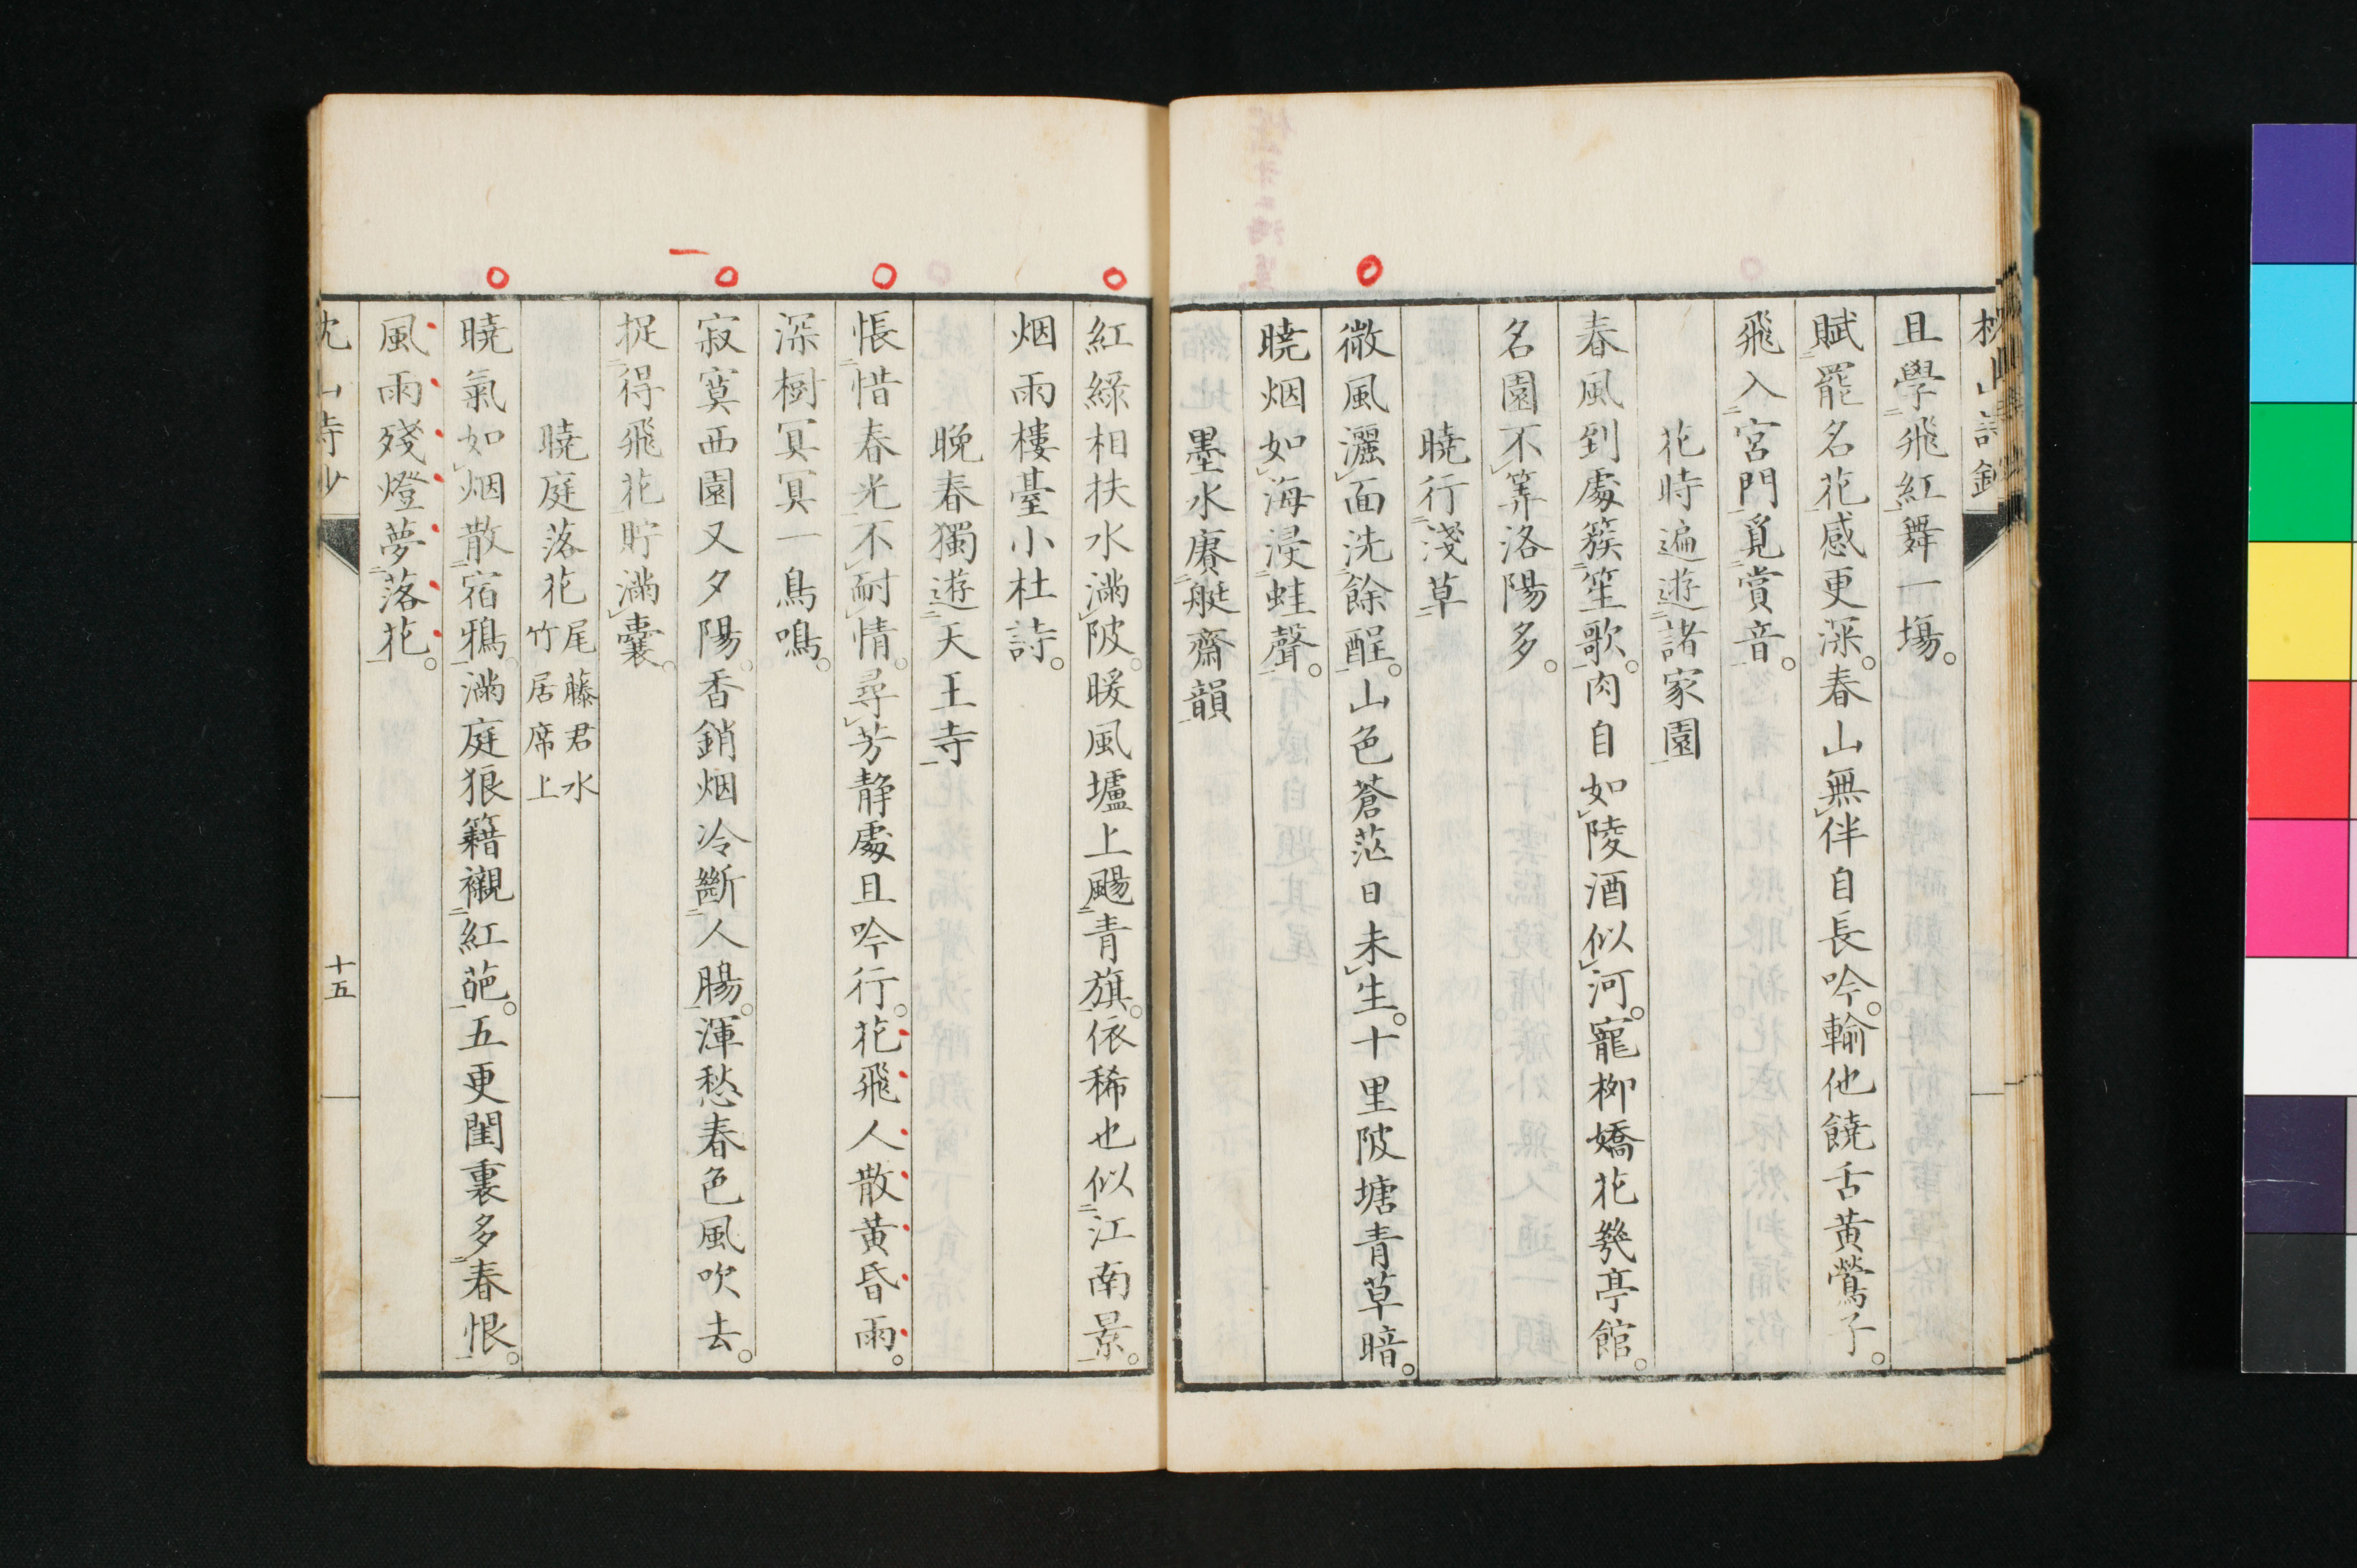 且學飛紅舞一塲。
賦罷名花感更深。春山無伴自長吟。輸他饒舌黄鶯子。
飛入宮門覓賞音。
花時遍遊諸家園
春風到處簇笙歌。肉自如陵酒似河。寵栁嬌花幾亭館。
名園不筭洛陽多。
曉行淺草
微風灑面洗餘酲。山色蒼茫日未生。十里陂塘青草暗。
曉烟如海浸蛙聲。
墨水賡艇齋韻
紅綠相扶水滿陂。暖風壚上颺青旗。依稀也似江南景。
烟雨樓臺小杜詩。
晚春獨遊天王寺
悵惜春光不耐情。尋芳静處且吟行。花飛人散黄昏雨。
深樹冥冥一鳥鳴。
寂寞西園又夕陽。香銷烟冷斷人腸。渾愁春色風吹去。
捉得飛花貯滿囊。
曉庭落花尾藤君水竹居席上
曉氣如烟散宿鴉。滿庭狼籍襯紅葩。五更閨裏多春恨。
風雨殘燈夢落花。
十五